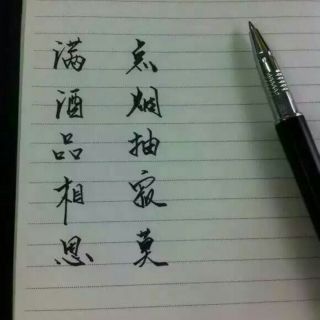 点烟抽寂莫
满酒品相思